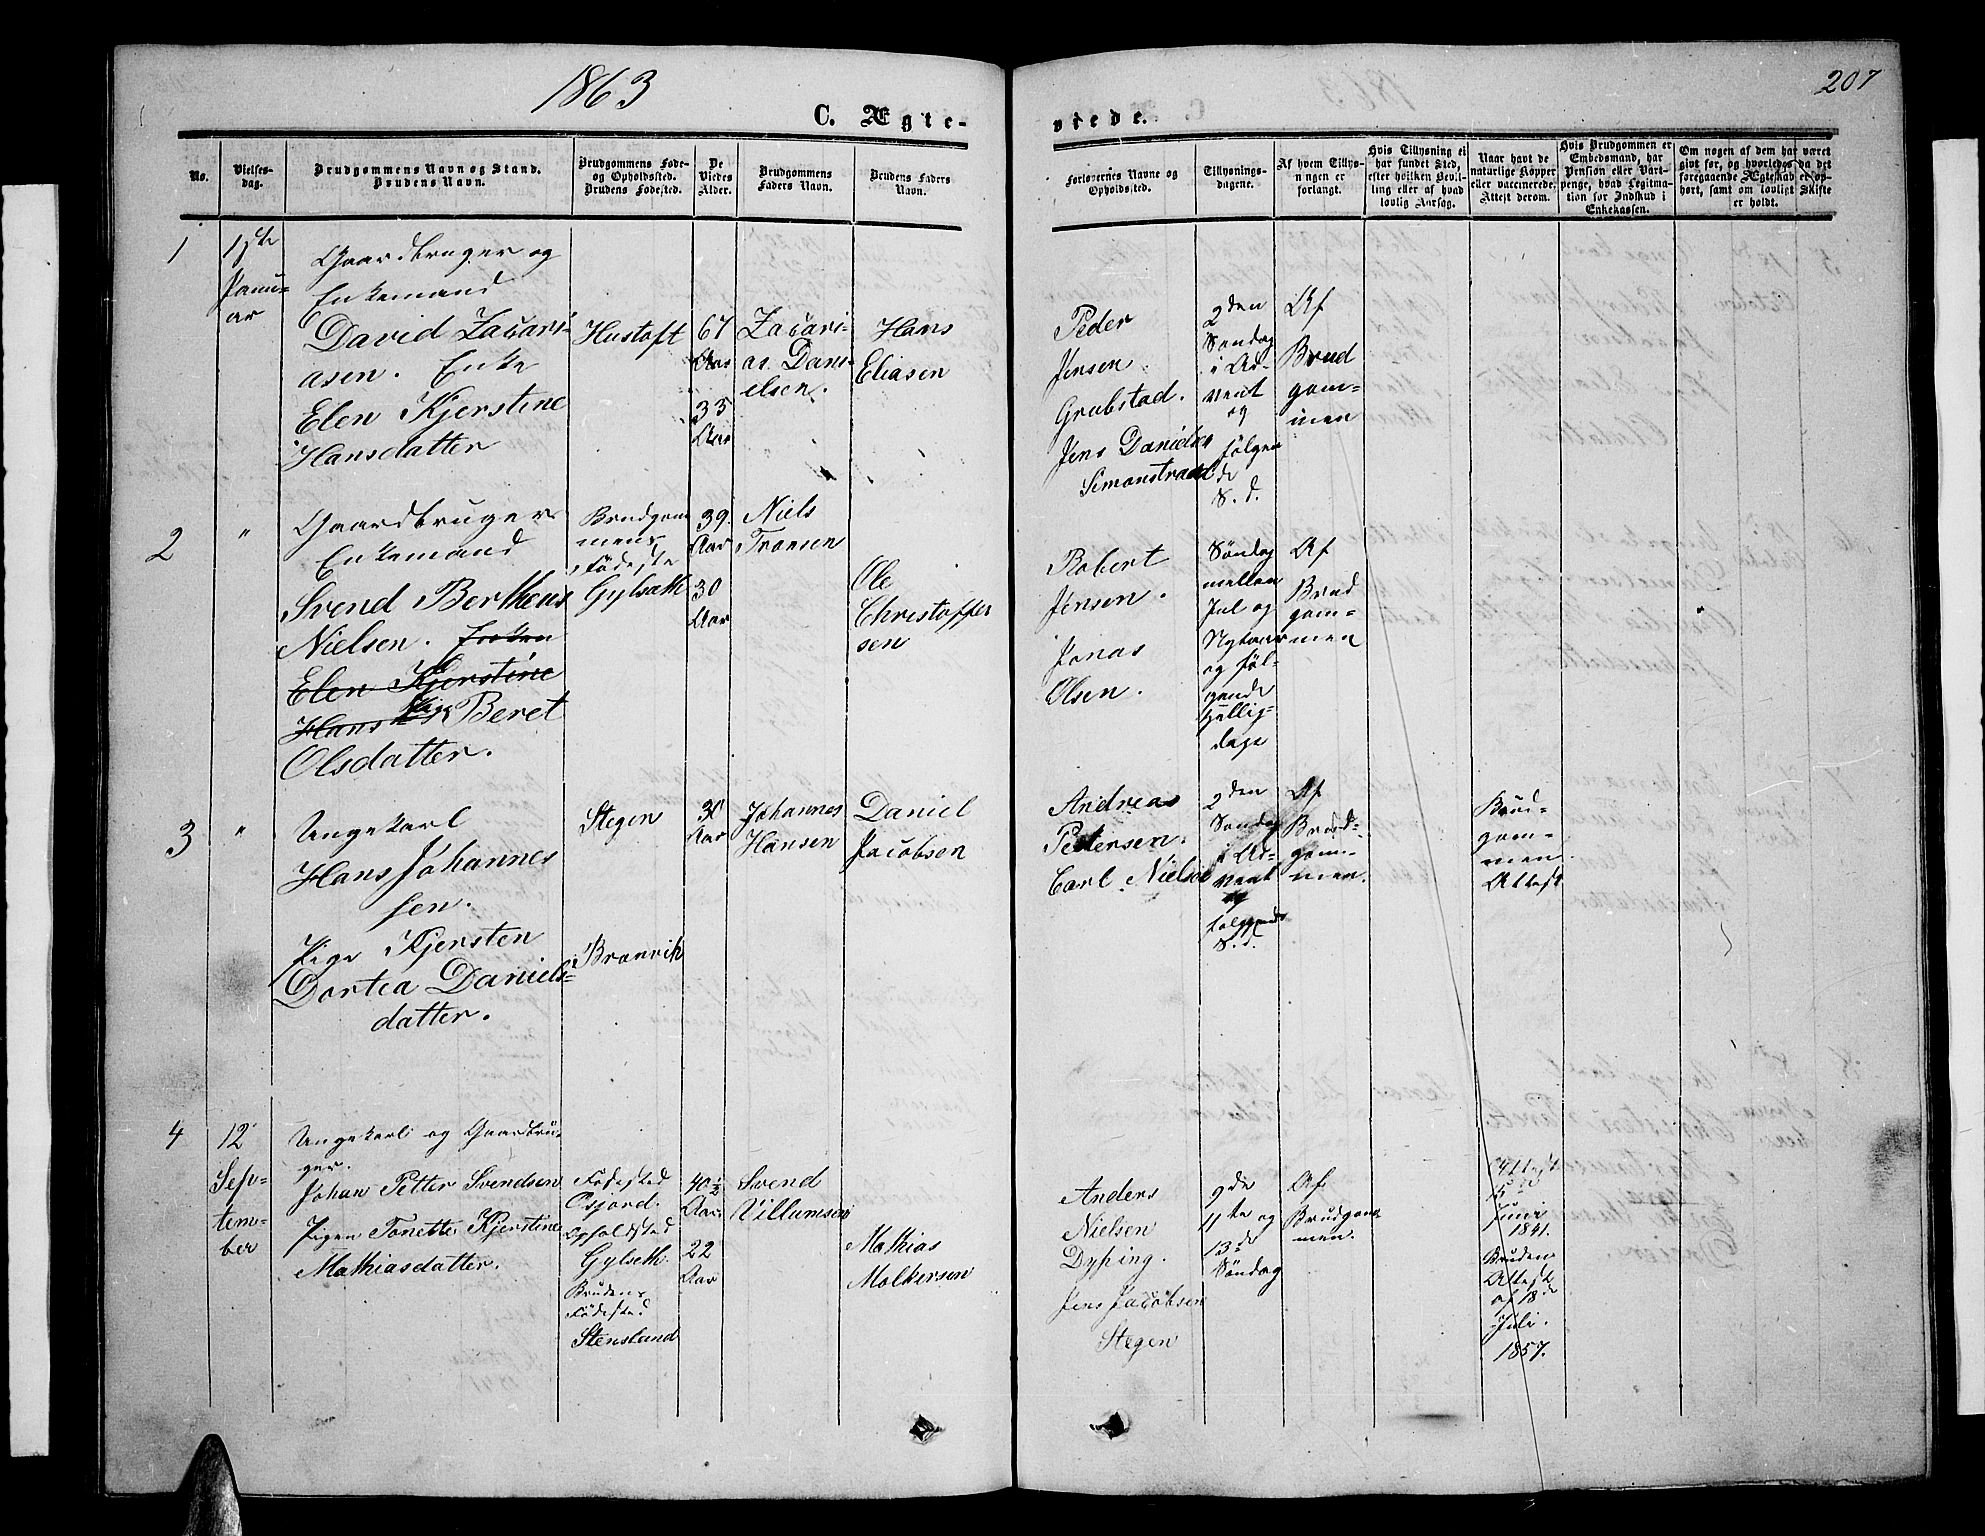 1863
207
C. Ægte-
viede.
No.
Vielses-
dag.
Brudgommens Navn og Stand.
Brudens Navn.
Brudgommens Føde-
og Opholdsted.
Brudens Fødested.
De
Viedes
Alder.
Brudgommens
Faders Navn.
Brudens Faders
Navn.
Forlovernes Navne og
Opholdsted.
Tillysnings-
dagene.
Af hvem Tillys-
ningen er
forlangt.
Hvis Tillysning ei
har fundet Sted,
efter hvilken Bevil-
ling eller af hvad
lovlig Aarsag.
Naar havt de
naturlige Kopper
eller vaccinerede,
Attest derom.
Hvis Brudgommen er
Embedsmand, har
Pension eller Vart-
penge, hvad Legitima-
tion for Indskud i
Enkekassen.
Om nogen af dem har været
gift før, og hvorledes da det
foregaaende Ægteskab er op-
hørt, samt om lovligt Skifte
er holdt.
1
Janu-
ar
Gaardbruger og
Enkemand
David Zacari-
asen. Enke
Elen Kjerstine
Hansdatter
Hustoft
67
Aar
33
Aar
Zacari-
as Dani-
elsen.
Hans
Eliasen
Peder
Jensen
Grubstad.
Jens Danielsen
Simonstrand
2den
Søndag
i Ad-
vent
og
følgen
de
S. d.
Af
Brud
gom-
men
2
"
Gaardbruger
Enkemand
Svend Bertheus
Nielsen.
Elen Kjerstine
Hans
Pige Beret
Olsdatter.
Brudgom
mens
Fødeste
Gylseth
39.
Aar
30
Aar
Niels
Tronsen
Ole
Christoffer
sen
Robert
Jensen.
Jonas
Olsen.
Søndag
mellem
Jul og
Nytaar
og føl-
gende
Hellig-
dage
Af
Brud
gom-
men
3
"
Ungekarl
Hans Johannes
sen.
Pige Kjersten
Dortea Daniels-
datter.
Stegen
Branvik
30
Aar
Johannes
Hansen
Daniel
Jacobsen
Andreas
Petersen.
Carl Nielsen
2den
Søndag
i Ad-
vent
og
følgende
S. d.
Af
Brud-
gom-
men.
Brud-
gom-
men.
Attest
4
12
Sep-
tem-
ber
Ungekarl og Gaardbru-
ger.
Johan Petter Svendsen
Pigen Tonette Kjerstine
Mathiasdatter.
Fødested
Opholdsted
Gylseth
Brudens
Fødested
Stensland
40 1/2
Aar
22
Aar
Svend
Villumsen
Mathias
Molkersen
Anders
Nielsen
Dyping.
Jens Jacobsen
Stegen
9de
11te og
13de
Søndag
Af
Brudgom
men.
Attest
Juni
1841.
Bruden
Attest
af 18de
Juli.
1857.